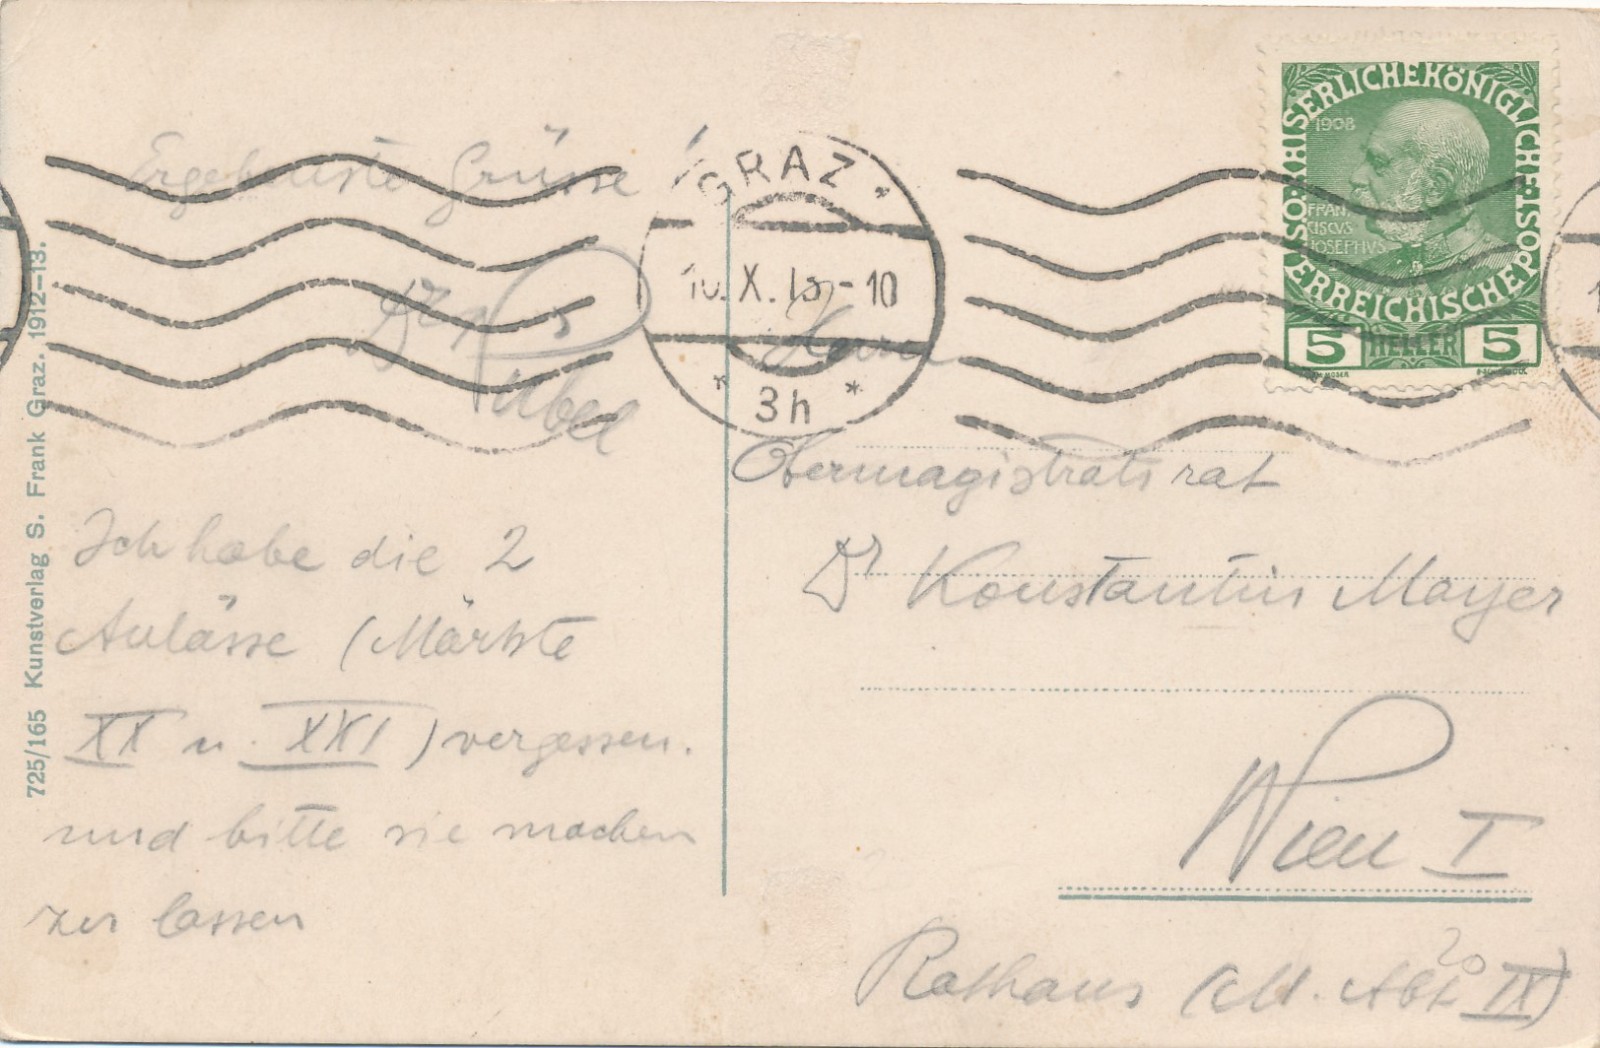 Ergebenste Grüsse!
Dr
Übel
Ich habe die 2
Anlässe (Märkte
XX u. XXI) vergessen.
und bitte sie machen
zu lassen
725/165 Kunstverlag S. Frank Graz. 1912-13.
GRAZ
X. -10
* 3h *
K.K.
SERLICHEKÖNIGLICHE
ÖSTERREICHISCHE POST
1908
FRAN
CISCVS
IOSEPHVS
5 HELLER 5
Herrn
Obermagistratsrat
Dr Konstantin Mayer
Wien I
Rathaus (M. Abt IX)
20